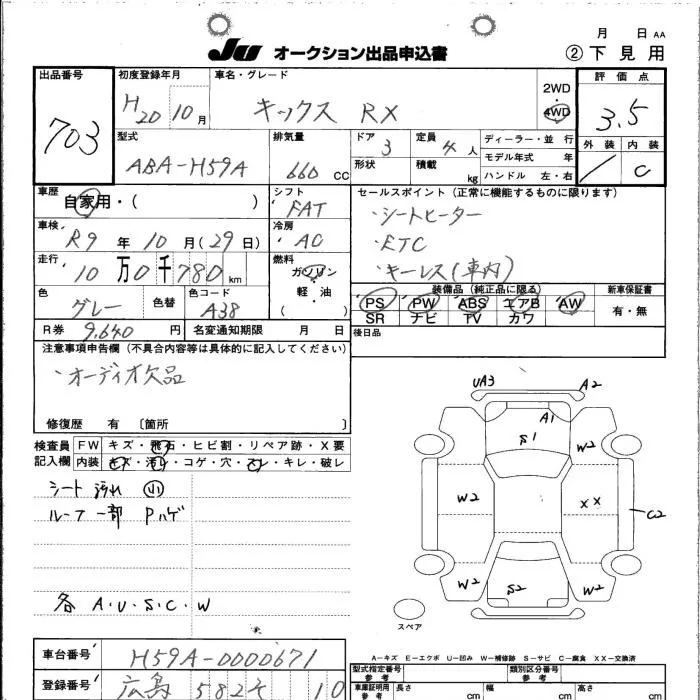 月 日 AA
JU オークション出品申込書 ② 下見用
出品番号 初度登録年月 車名・グレード 2WD・4WD 評価点
703 H20 10月 キックス RX 3.5
型式 排気量 ドア 定員 ディーラー・並行 外装 内装
ABA-H59A 660 CC 3 4人 モデル年式 年 / C
形状 積載 kg ハンドル 左・右
車歴 自家用・( ) シフト FAT セールスポイント (正常に機能するものに限ります)
・シートヒーター
車検 R9年 10月(29日) 冷房 AC ・ETC
・キーレス(車内)
走行 10万0千780km 燃料 ガソリン・軽・油 ( )
装備品 (純正品に限る) 新車保証書
PS PW ABS エアB AW 有・無
SR ナビ TV カワ
色 グレー 色替 色コード A38
R券 9,640円 名変通知期限 月 日 後日品
注意事項申告欄 (不具合内容等は具体的に記入してください)
・オーディオ欠品
修復歴 有 〔箇所 〕
検査員記入欄 FW キズ・飛石・ヒビ割・リペア跡・X要
内装 キズ・汚レ・コゲ・穴・スレ・キレ・破レ
シート 汚れ 小
ルーフ 一部 Pハゲ
各 A・U・S・C・W
UA3 A2
A1
S1 W2
W2 XX C2
W2 S2 W2
スペア
A−キズ E−エクボ U−凹み W−補修跡 S−サビ C−腐食 XX−交換済
車台番号 H59A-0000671
登録番号 広島 582 そ 10
型式指定番号 参考 類別区分番号 参考
車庫証明用 参考 長さ cm 幅 cm 高さ cm